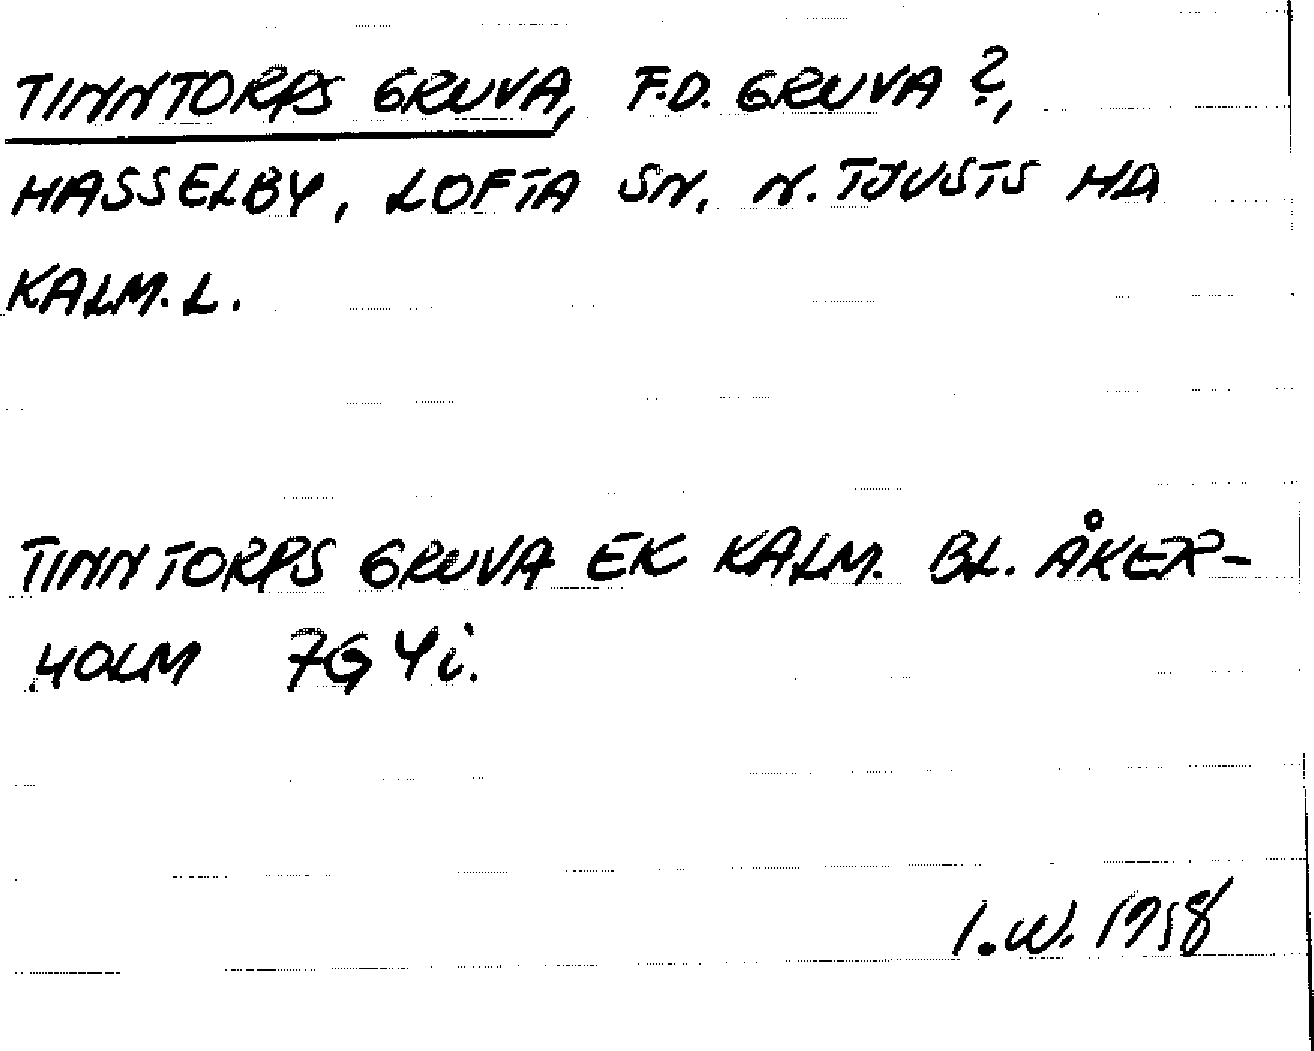 TINNTORPS GRUVA, F.D. GRUVA ?,
HASSELBY, LOFTA SN, N. TJUSTS HD
KALM. L.
TINNTORPS GRUVA EK KALM. BL. ÅKER-
HOLM 7G 4i.
I.W. 1958